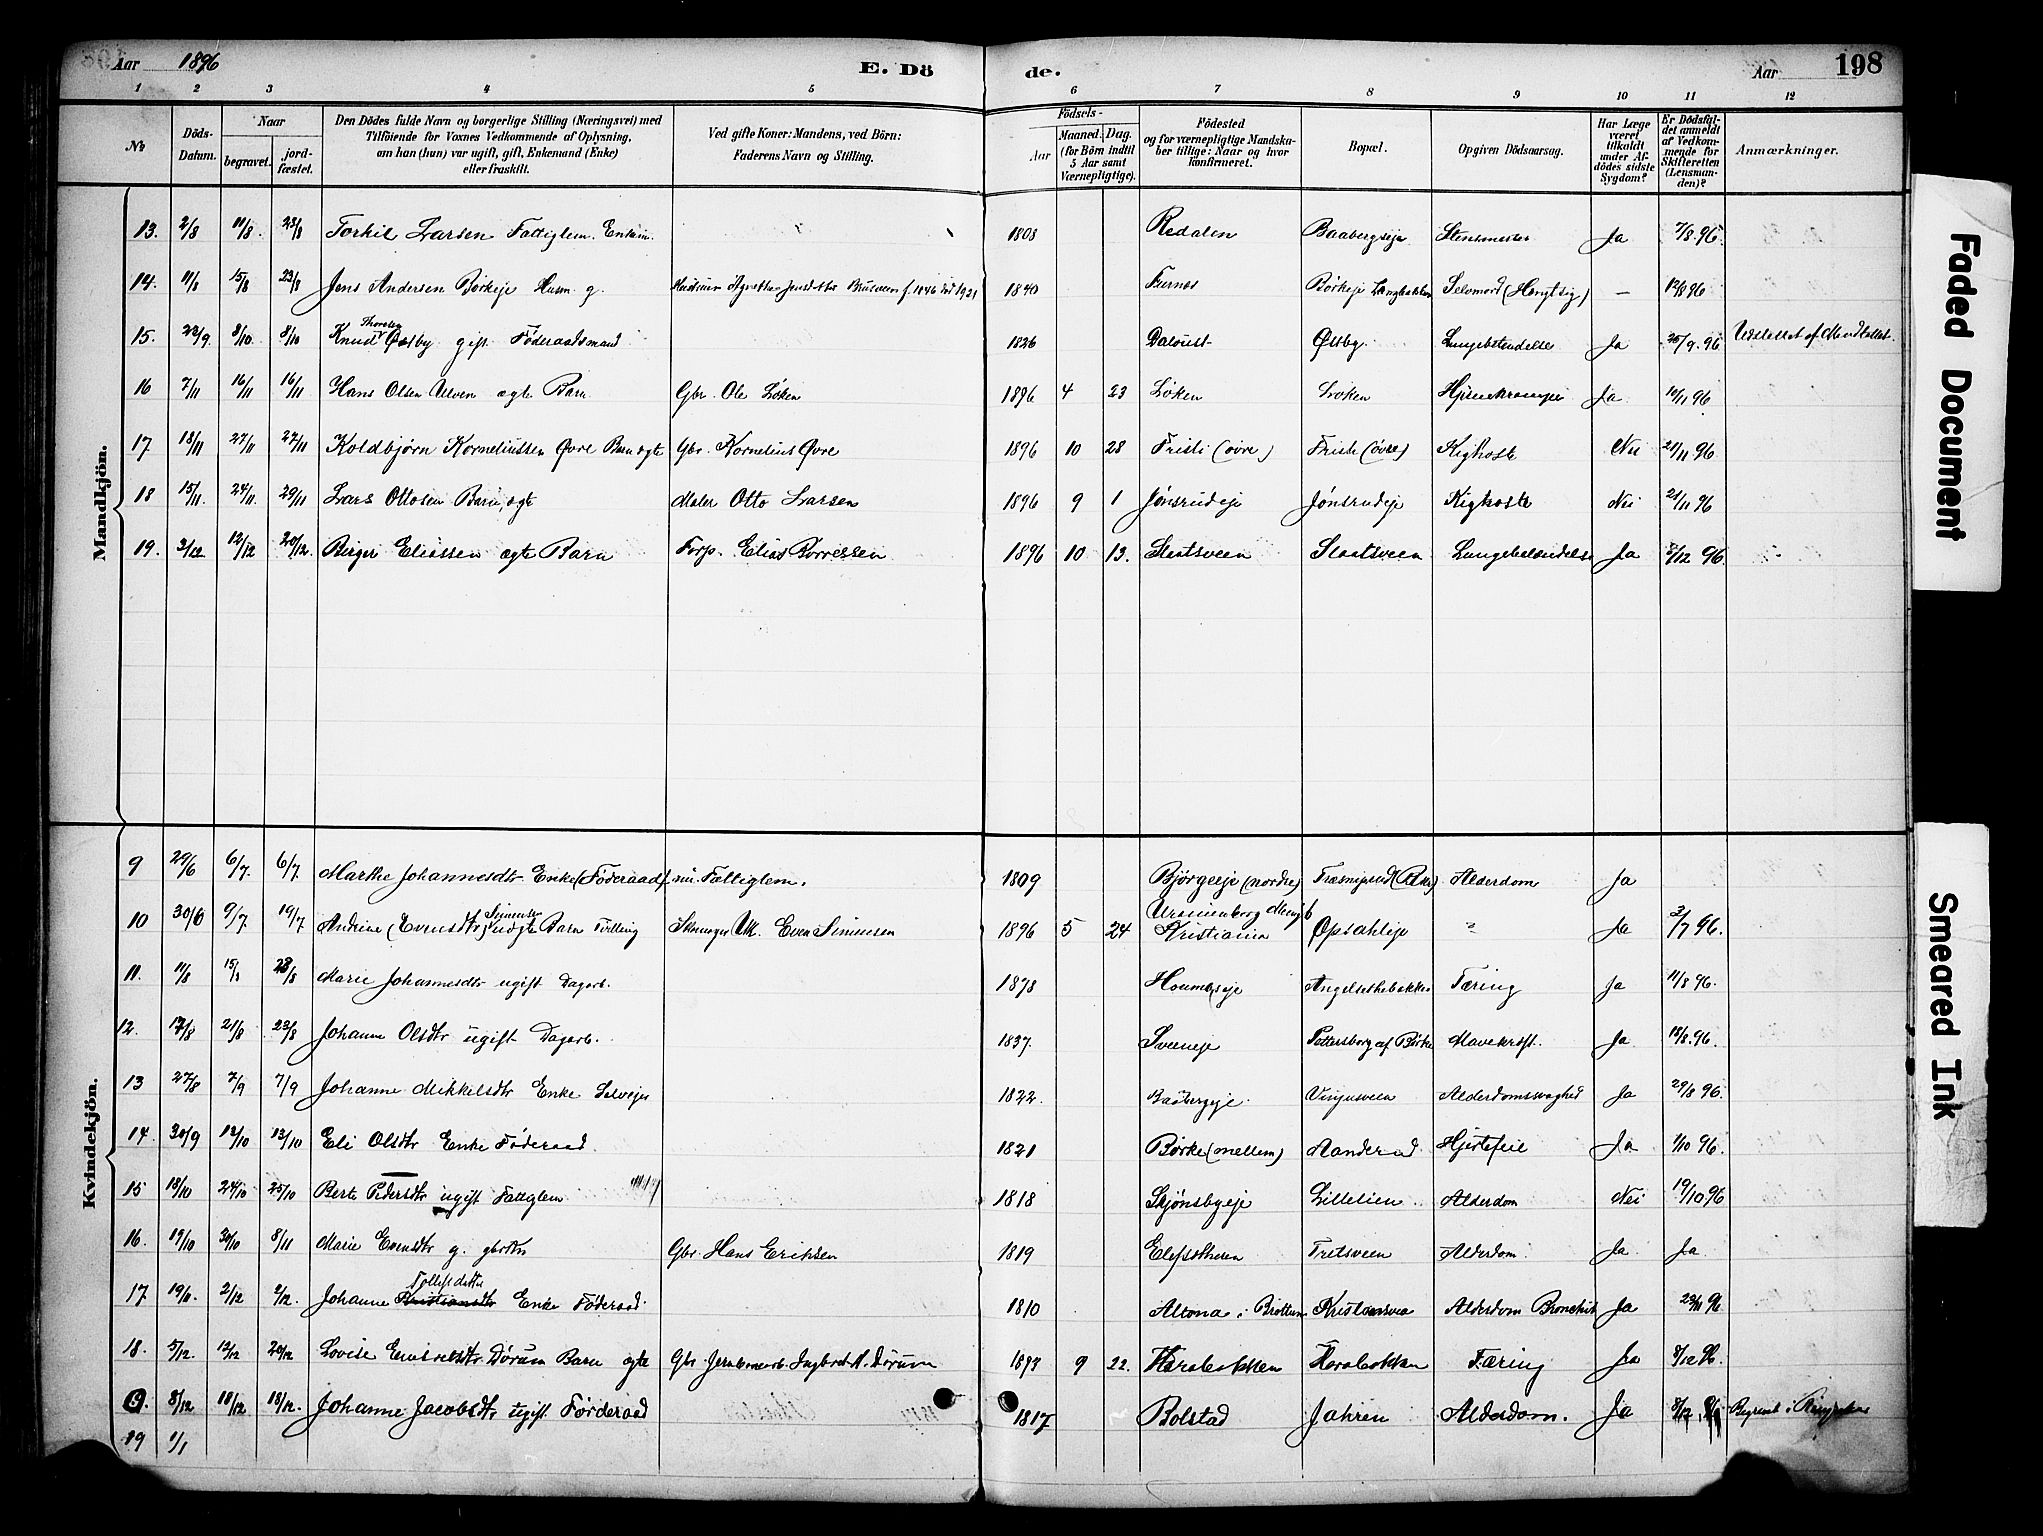 Aar 1896 E. Dö de. Aar 198
1 2 3 4 5 6 7 8 9 10 11 12
No
Döds-Datum.
Naar
begravet.
jordfæstet.
Den Dödes fulde Navn og borgerlige Stilling (Næringsvei) med
Tilföiende for Voxnes Vedkommende af Oplysning,
om han (hun) var ugift, gift, Enkemand (Enke)
eller fraskilt.
Ved gifte Koner: Mandens, ved Börn:
Faderens Navn og Stilling.
Födsels-
Aar
Maaned. Dag.
(for Börn indtil
5 Aar samt
Værnepligtige).
Födested
og for værnepligtige Mandskaber tillige: Naar og hvor
konfirmeret.
Bopæl.
Opgiven Dödsaarsag.
Har Læge
været
tilkaldt
under Afdödes sidste
Sygdom?
Er Dödsfaldet anmeldt
af Vedkommende for
Skifteretten
(Lensmanden)?
Anmærkninger.
Mandkjön.
13. 2/8 11/8 23/8 Torkil Larsen Fattiglem. Enkem. 1808 Redalen Baabergseje Ja 7/8.96.
14. 11/8 15/8 23/8 Jens Andersen Börkeje Husm g. 1840 Furnes Börkeje Selvmord (Hængt sig) — 12/8 96
15. 22/9 8/10 8/10 Knud Thorsten Østby gift Föderaadsmand 1826 Østby Lungebetændelse Ja 25/9.96
16 7/11 16/11 16/11 Hans Olsen Ulven ægte Barn Gbr. Ole Löken 1896 4 23 Löken Löken Hjernekrampe Ja 10/11 96
17. 18/11 27/11 27/11 Koldbjørn Korneliussen Øvre Barn ægte Gbr. Kornelius Øvre 1896 10 28 Fristi (övre) Fristi (övre) Kighoste Nei 21/11 96
18 15/11 24/11 29/11 Lars Ottosen Barn, ægte Maler Otto Larsen 1896 9 1 Jönsrudeje Jönsrudeje Kighoste Nei 21/11 96
19. 3/12 12/12 20/12. Birger Eliassen ægte Barn Forp. Elias Borressen 1896 10 13. Staatsveen Staatsveen Lungebetændelse Ja 5/12 96
Kvindekjön.
9 29/6 6/7. 6/7. Marthe Johannesdtr Enke (Föderaad) nu Fattiglem. 1809 Bjørgeeje (nordre) Alderdom Ja
10 30/6 9/7. 19/7 Andrine (Evensdtr) Simensen uægte Barn Tvilling Skomager Uk. Even Simensen 1896 5 24 Uranienborg Menigh Kristiania Opsahleje Ja 3/7 96.
11. 11/8 15/8 23/8 Marie Johannesdtr ugift Dagarb. 1878 Houmbseje Angelsthebakken Tæring Ja 11/8 96.
12. 17/8 21/8 23/8 Johanne Olsdtr ugift Dagarb. 1837. Sveeneje Pettersborg af Börke Mavekræft. Ja 18/8.96.
13 27/8 7/9 7/9 Johanne Mikkelsdtr Enke Selvejer 1822. Baabergeje Alderdomssvaghed Ja 29/8 96.
14. 30/9 12/10 12/10 Eli Olsdtr Enke Föderaad. 1821 Börke (mellem) Aanderud Hjertefeil Ja 1/10 96.
15 18/10 24/10 25/10 Berte Pedersdtr ugift Fattiglem 1818 Skjönsbyeje Lillelien Alderdom Nei 19/10 96
16. 19/10 30/10 8/11 Marie Evensdtr g. Gbr. Hans Eriksen 1819 Tretsveen Alderdom Ja Ja
17. 19/11. 2/12 2/12. Johanne Tollefsdatter Kristiansdtr Enke Föderaad. 1810 Altona i Brottum Kristiansvea Alderdom Bronchit Ja 23/11 96
18. 5/12. 12/12 20/12 Lovise Dørum Barn ægte Gbr. Jernbanearb. Ingbret A. Dørum 1893 9 22. Harabakken Harabakken Tæring Ja 8/12 96.
9. 8/12 18/12 18/12. Johanne Jacobsdtr ugift Förderaad 1817 Bolstad Jahren Alderdom. Ja 8/12
19 1/1
Faded Document
Smeared Ink